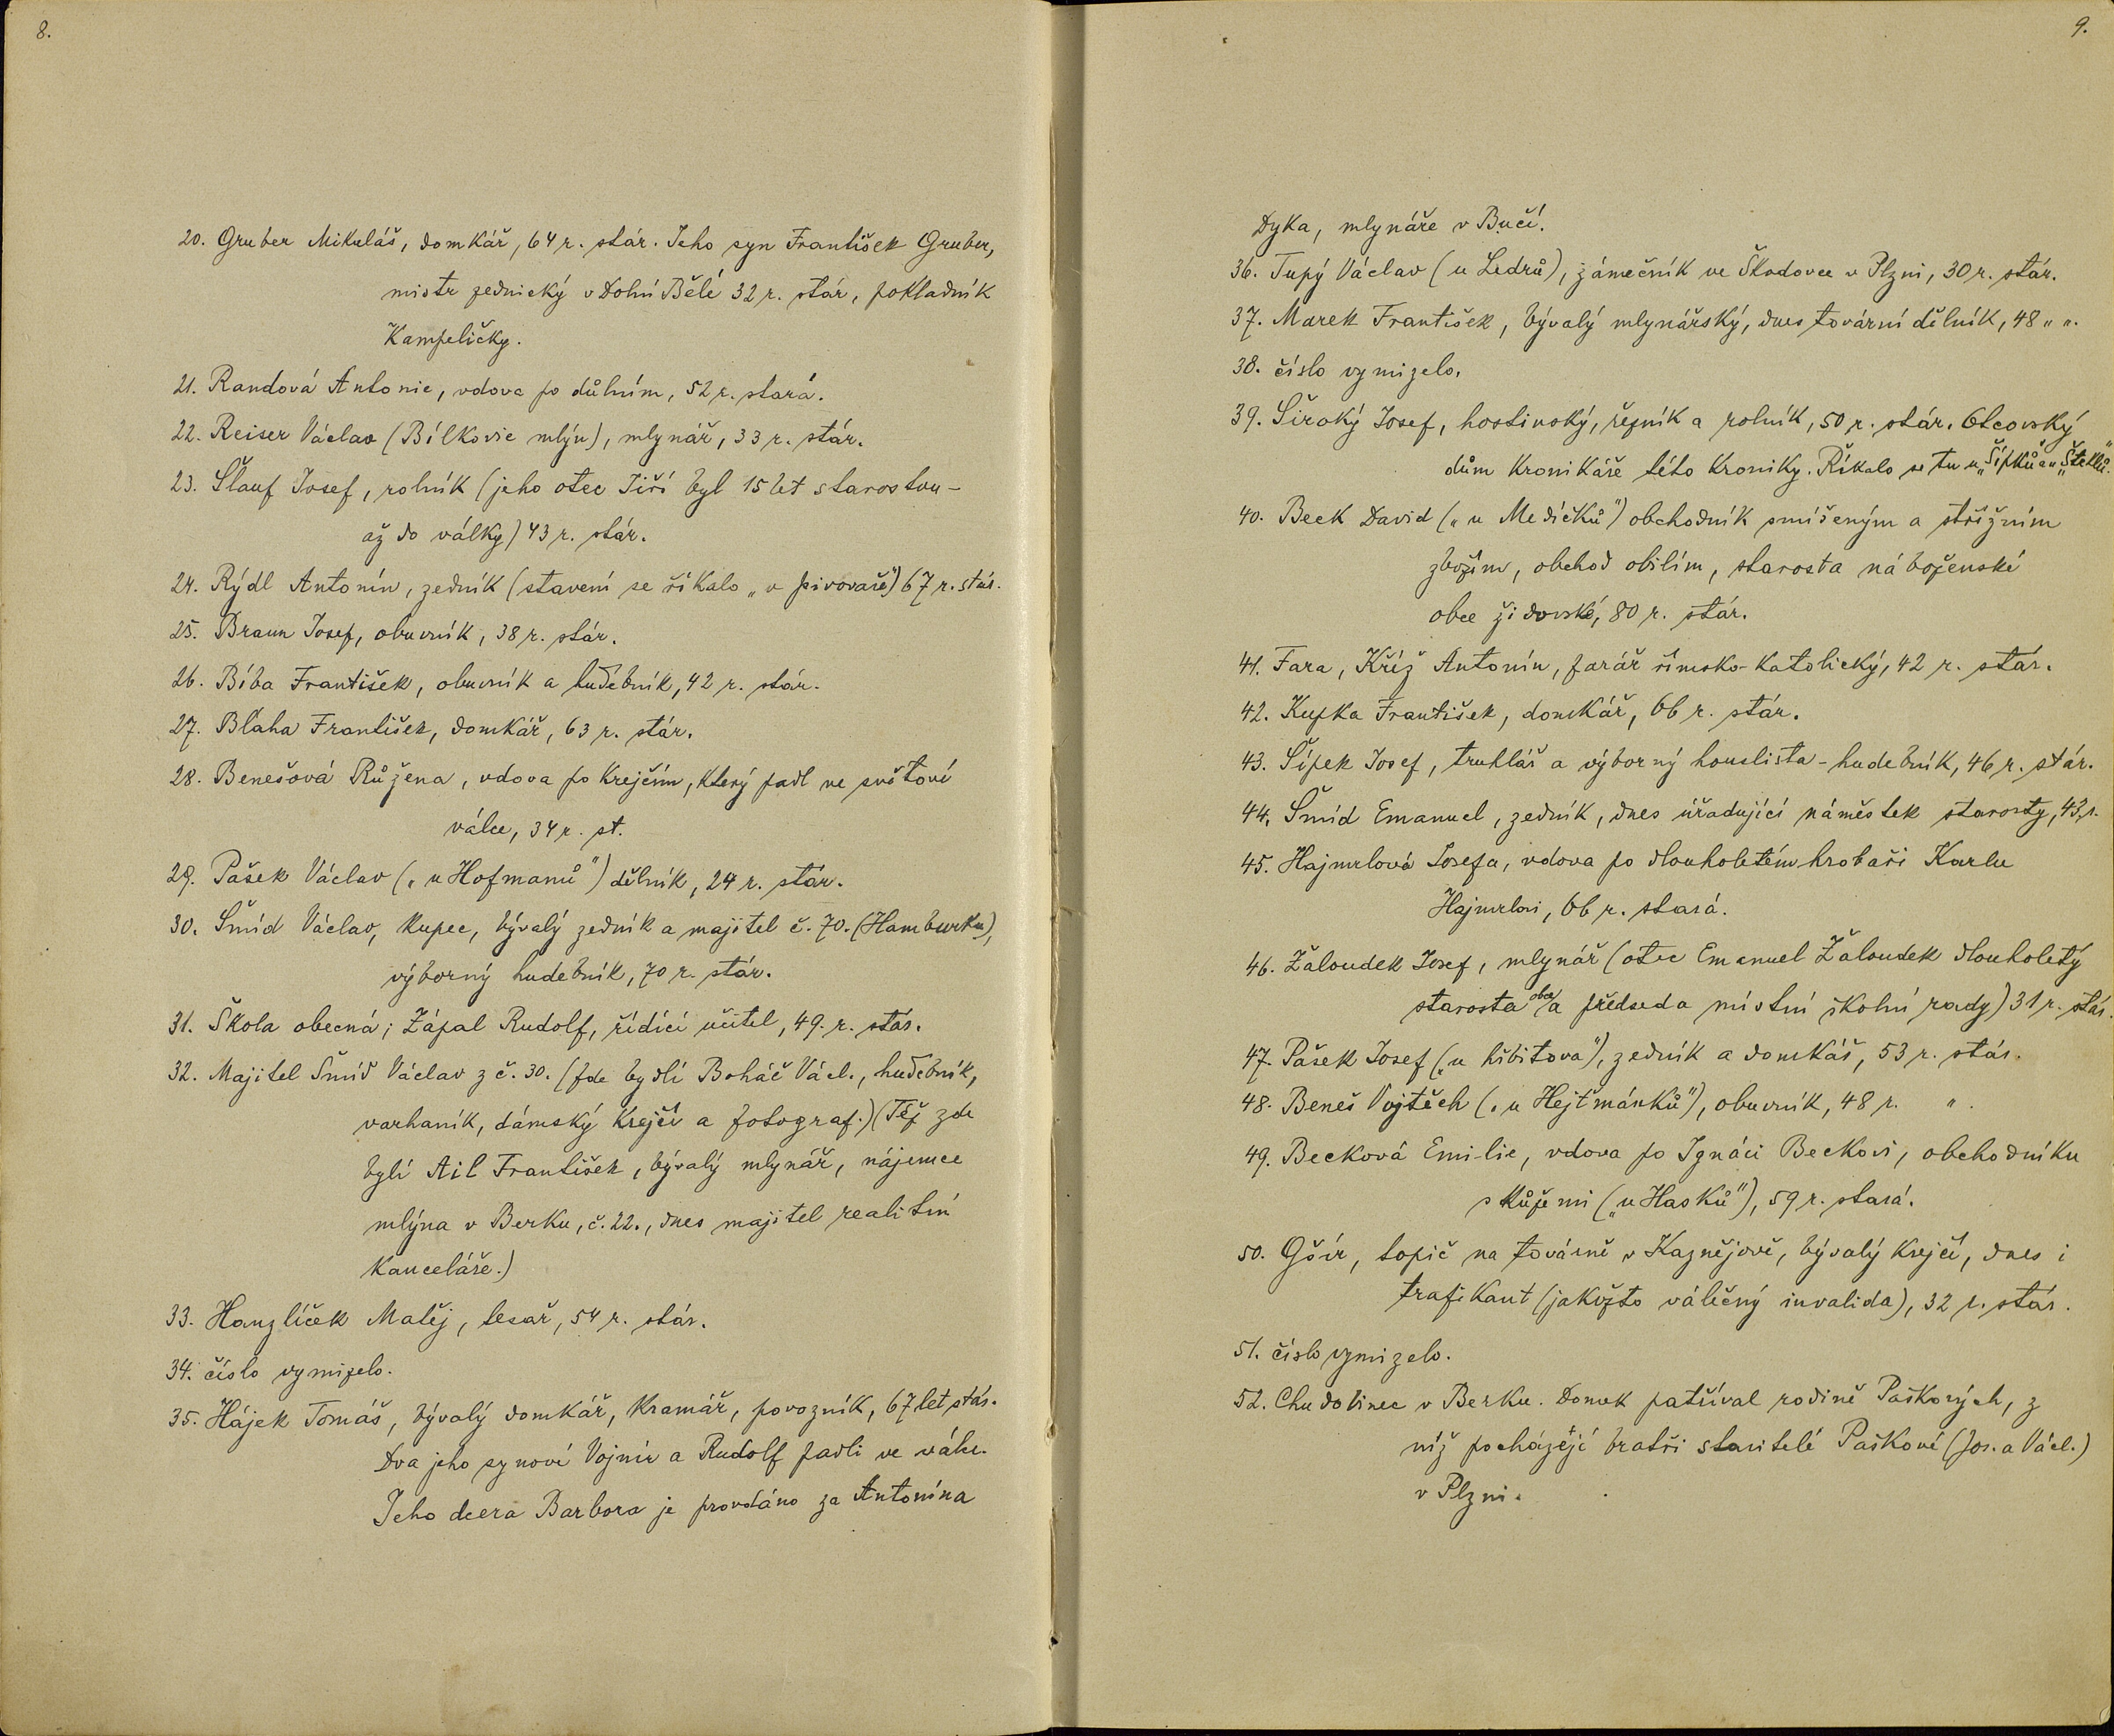 8.
20. Gruber Mikuláš, domkář, 64 r. stár. Jeho syn František Gruber,
mistr zednický v Dolní Bělé 32 r. stár, pokladník
Kampeličky.
21. Randová Antonie, vdova po důlním, 52 r. stará.
22. Reiser Václav (Bílkovic mlýn), mlynář, 33 r. stár.
23. Šlauf Josef, rolník (jeho otec Jiří byl 15 let starostou -
až do války) 43 r. stár.
24. Rýdl Antonín, zedník (stavení se říkalo „v pivovaře") 67 r. stár.
25. Braun Josef, obuvník, 38 r. stár.
26. Bíba František, obuvník a hudebník, 42 r. stár.
27. Bláha František, domkář, 63 r. stár.
28. Benešová Růžena, vdova po krejčím, který padl ve světové
válce, 34 r. st.
29. Pašek Václav („u Hofmanů") dělník, 24 r. stár.
30. Šmíd Václav, kupec, bývalý zedník a majitel č. 70. (Hamburku),
výborný hudebník, 70 r. stár.
31. Škola obecná; Zápal Rudolf, řídící učitel, 49. r. stár.
32. Majitel Šmíd Václav z č. 30. (zde bydlí Boháč Václ., hudebník,
varhaník, dámský krejčí a fotograf.) (Též zde
bylí Ail František, bývalý mlynář, nájemce
mlýna v Berku, č. 22., dnes majitel realitní
kanceláře.)
33. Hanzlíček Matěj, tesař, 54 r. stár.
34. číslo vymizelo.
35. Hájek Tomáš, bývalý domkář, kramář, povozník, 67 let stár.
Dva jeho synové Vojmír a Rudolf padli ve válce.
Jeho dcera Barbora je provdáno za Antonína
9.
Dyka, mlynáře v Bučí.
36. Tupý Václav (u Ledrů), zámečník ve Škodovce v Plzni, 30 r. stár.
37. Marek František, bývalý mlynářský, dnes tovární dělník, 48 " ".
38. číslo vymizelo.
39. Široký Josef, hostinský, řezník a rolník, 50 r. stár. Otcovský
dům kronikáře této kroniky. Říkalo se tu u „Šípků" a „Šteklů".
40. Beck David („u Medíčků") obchodník smíšeným a střižním
zbožím, obchod obilím, starosta náboženské
obce židovské, 80 r. stár.
41. Fara, Kříž Antonín, farář římsko-katolický, 42 r. stár.
42. Kupka František, domkář, 66 r. stár.
43. Šípek Josef, truhlář a výborný houslista - hudebník, 46 r. stár.
44. Šmíd Emanuel, zedník, dnes úřadující náměstek starosty, 43 r.
45. Hajmrlová Josefa, vdova po dlouholetém hrobaři Karlu
Hajmrlovi, 66 r. stará.
46. Žaloudek Josef, mlynář (otec Emanuel Žaloudek dlouholetý
starosta obce a předseda místní školní rady) 31 r. stár.
47. Pašek Josef („u hřbitova"), zedník a domkář, 53 r. stár.
48. Beneš Vojtěch („u Hejtmánků"), obuvník, 48 r. ".
49. Becková Emilie, vdova po Ignáci Beckovi, obchodníku
s kůžemi („u Hasků"), 59 r. stará.
50. Gšír, topič na továrně v Kaznějově, bývalý krejčí, dnes i
trafikant (jakožto válečný invalida), 32 r. stár.
51. číslo vymizelo.
52. Chudobinec v Berku. Domek patříval rodině Paškových, z
níž pocházejí bratři stavitelé Paškové (Jos. a Václ.)
v Plzni.